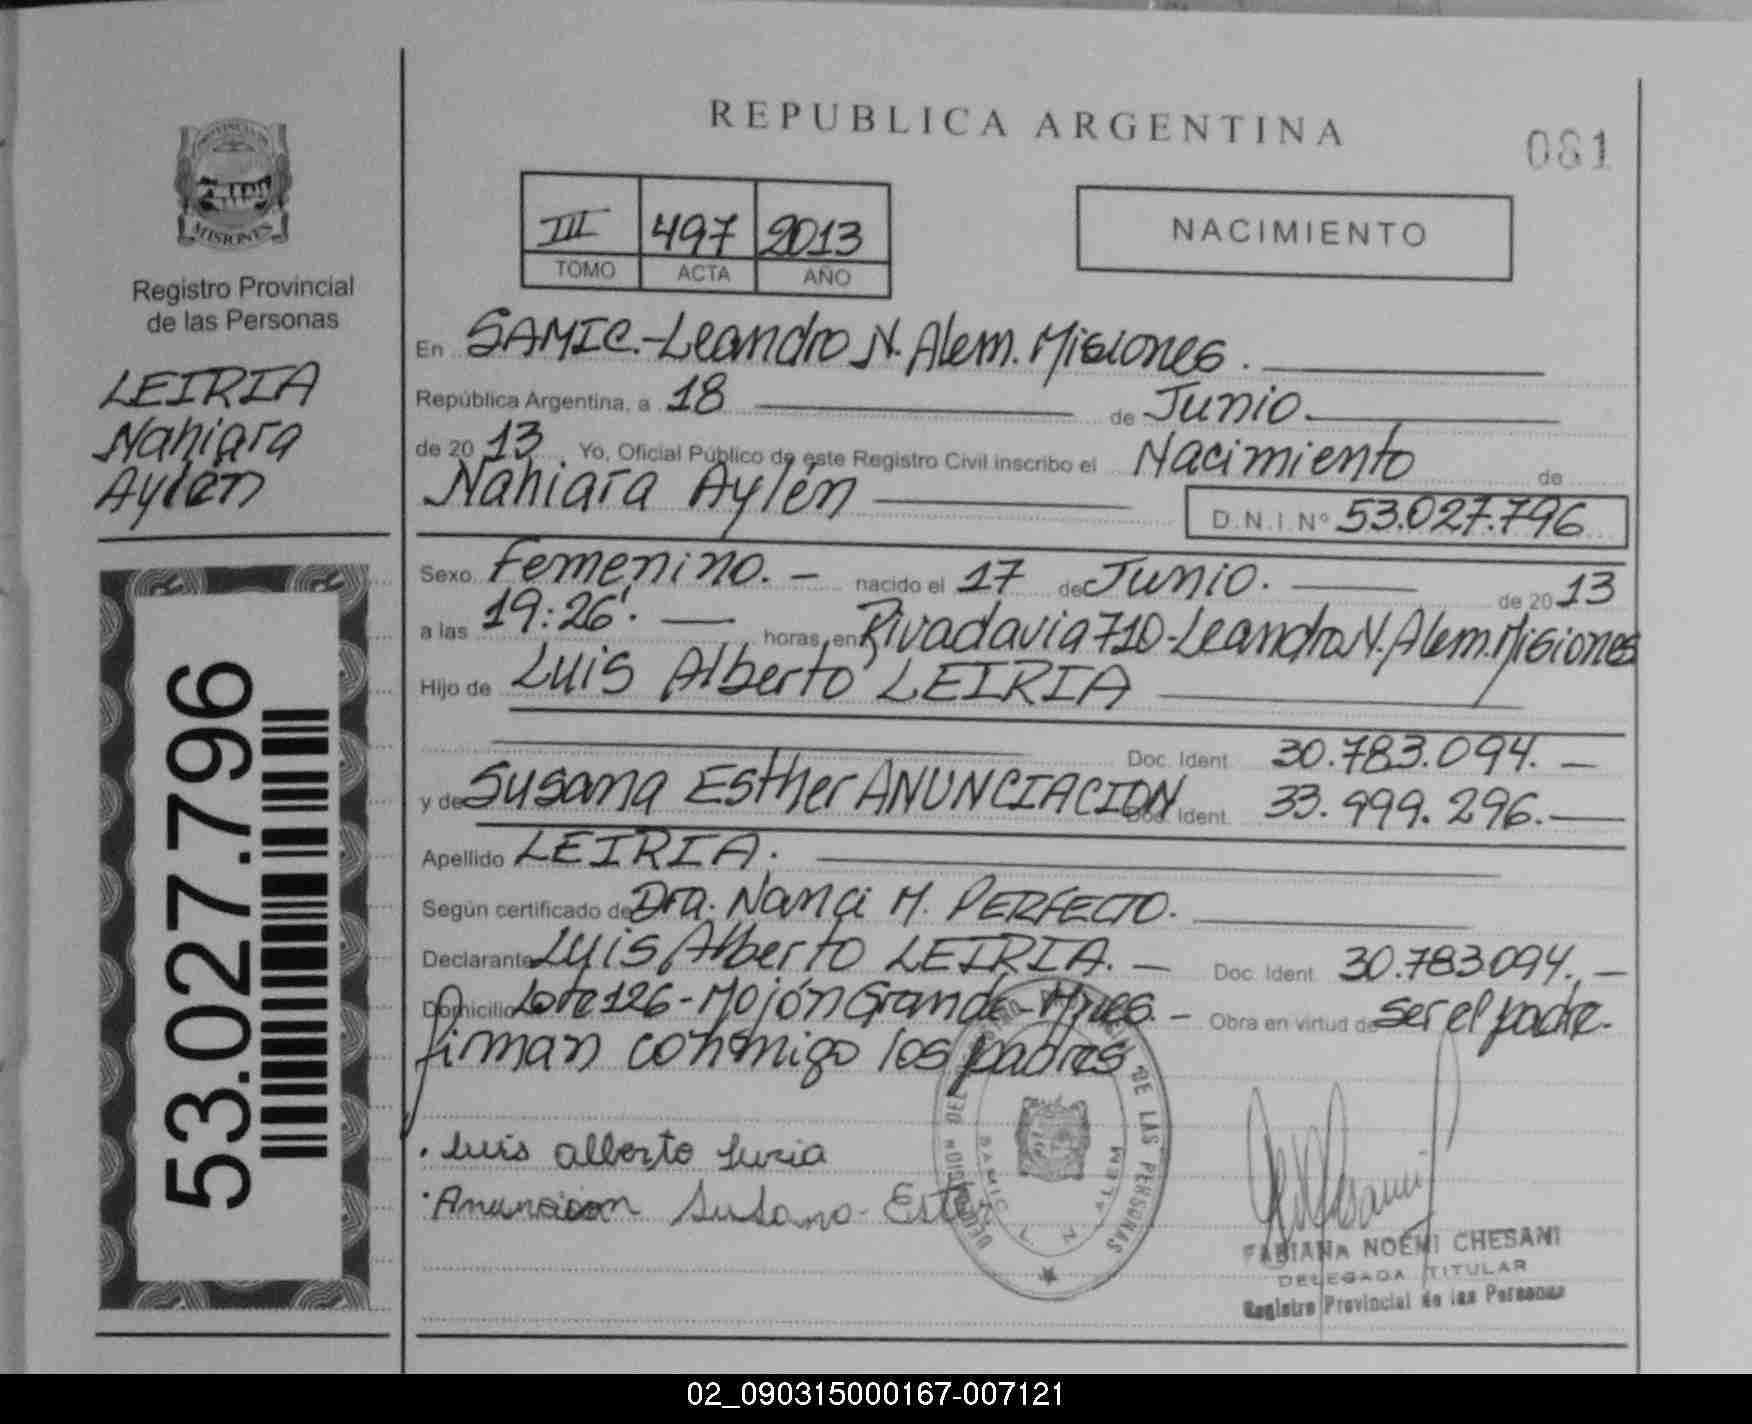 REPUBLICA ARGENTINA
081
PROVINCIA DE
MISIONES
Registro Provincial
de las Personas
LEIRIA
Nahiara
Aylén
53.027.796
III 497 2013
TOMO ACTA AÑO
NACIMIENTO
En SAMIC.-Leandro N. Alem. Misiones.
República Argentina, a 18 de Junio.
de 2013. Yo, Oficial Público de este Registro Civil inscribo el Nacimiento de
Nahiara Aylén
D.N.I. Nº 53.027.796
Sexo Femenino. - nacido el 17 de Junio. de 2013
a las 19:26'. horas, en Rivadavia 710-Leandro N. Alem. Misiones
Hijo de Luis Alberto LEIRIA
Doc. Ident. 30.783.094.-
y de Susana Esther ANUNCIACION Doc. Ident. 33.999.296.-
Apellido LEIRIA.
Según certificado de Dra. Nanci M. PERFECTO.
Declarante Luis Alberto LEIRIA. - Doc. Ident. 30.783094.-
Domicilio Lote 126-Mojón Grande-Mnes. - Obra en virtud de ser el padre.
firman conmigo los padres
. Luis alberto Leiria
. Anunciacion Susana Ester
DE LAS PERSONAS
SAMIC L. N. ALEM
FABIANA NOEMI CHESANI
DELEGADA TITULAR
Registro Provincial de las Personas
02_090315000167-007121